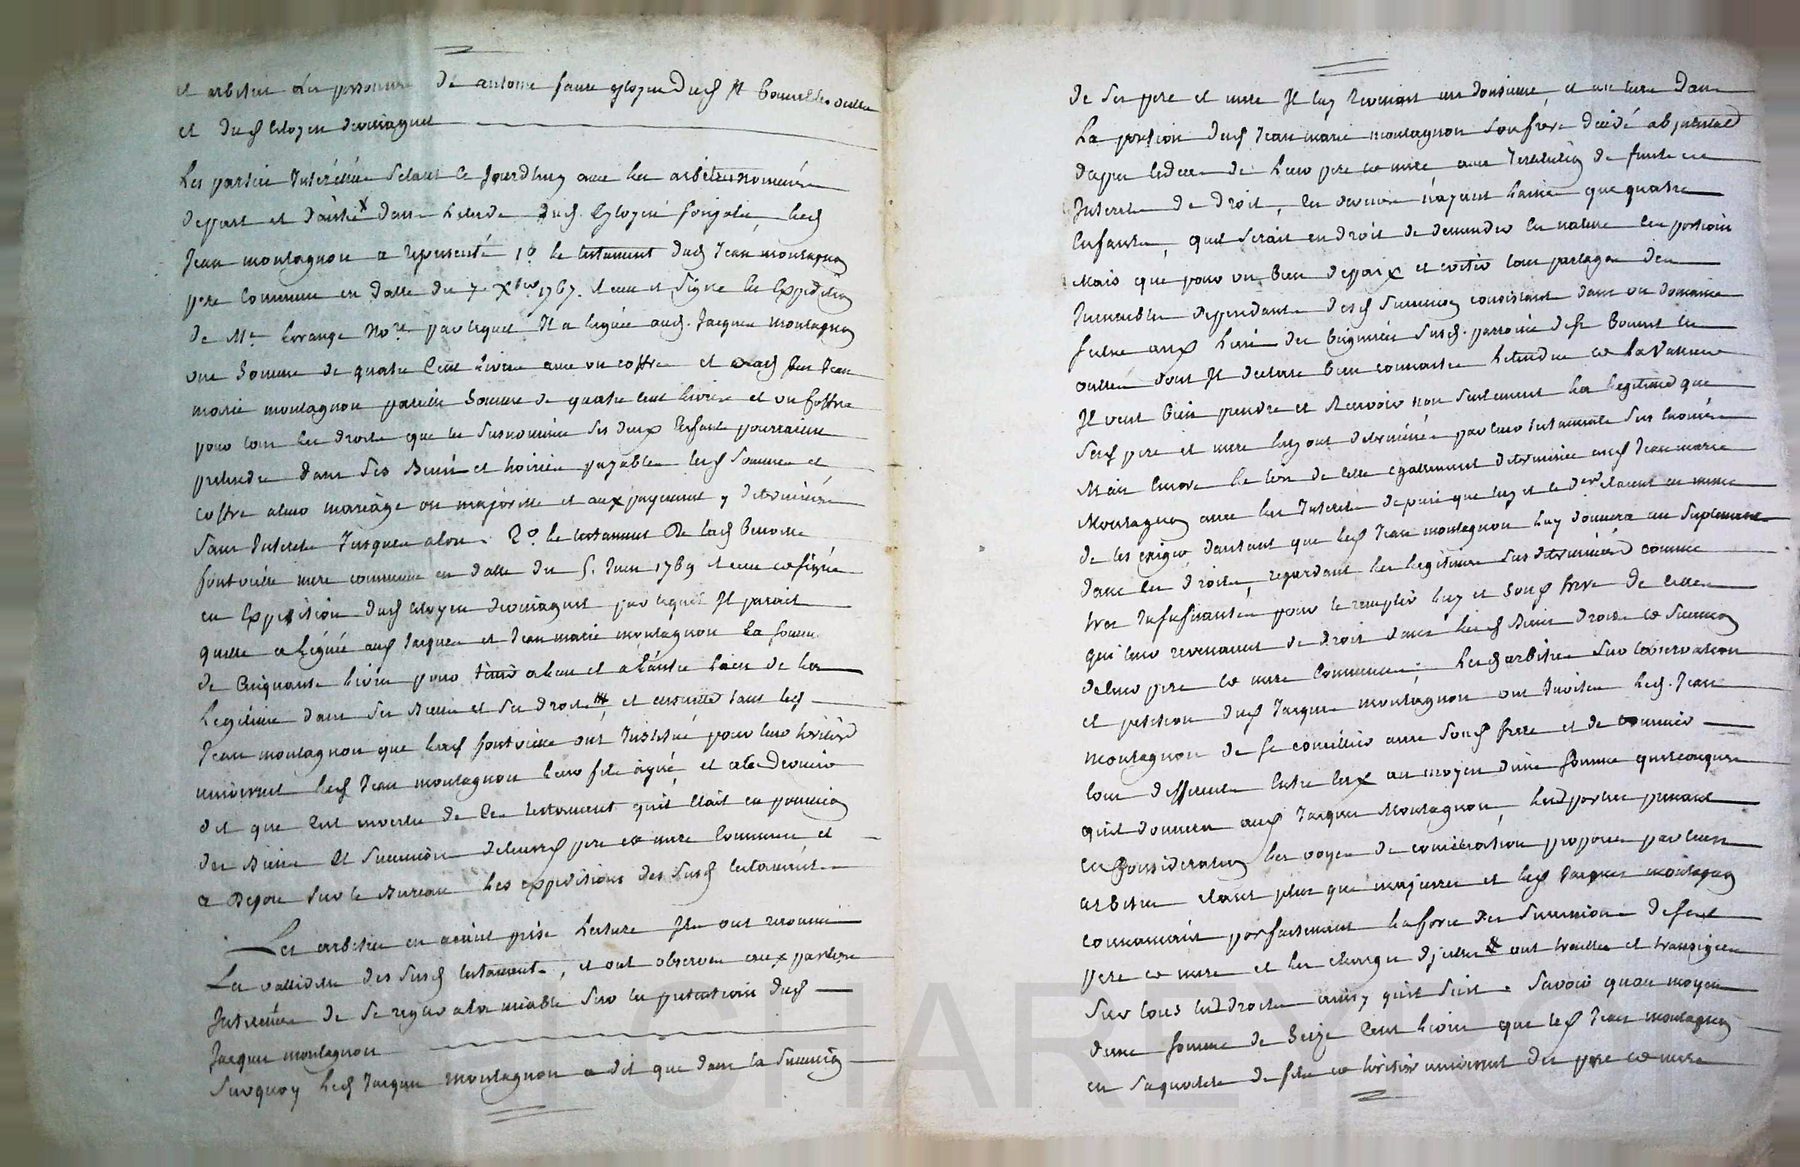 et arbitre les personnes de antoine faure citoyen dud St
et dud citoyen devinaguet
Les parties Interéssées S'etant ce Jourdhuy avec les arbitres nommés
depart et dautre dans Letude dud. Citoyen les
Jean montagnon a representé 1º le testament dud Jean montagnon
pere commun en datte du 7. Xbre 1767. et signé en Expedition
de Me Lorange Nore par lequel Il a legué aud. Jacques montagnon
une Somme de quatre Cent Livres avec un coffre et aud feu Jean
marie montagnon pareille Somme de quatre cent livres et un Coffre
pour tous les droits que les Susnommés Ses deux Enfants pourraient
pretendre dans Ses Biens et hoirie payables lesd Sommes et
coffre aleur mariage ou majorité et aux payement y determinés
Sans Interets Jusques alors. 2º le testament De lad Benoite
fontvieille mere commune en datte du 5. Juin 1769 et signé
en Expedition dud citoyen devinaguet par lequel Il parait
quelle a Leguée aud Jacques et Jean marie montagnon La Somme
de Cinquante Livres pour a lun et a l'autre Lieu de leur
Legitime dans Ses Biens et Ses droits et ensuite tant led
Jean montagnon que lad fontvieille ont Institué pour leur héritier
universel led Jean montagnon leur fils ayné, et ce Dernier
dit que Cest en vertu de ces testament qu'il était en possession
des Biens et Succession deleursd pere et mere Communs et
a Deposé Sur le Bureau Les expeditions des Susd testaments
Les arbitres en ayant prise Lecture Ils ont reconnu
La validité des Susd testaments, et ont observé aux parties
Interéssées de Se regler a l'amiable Sur les pretentions dud
Jacques montagnon
Surquoy Led Jacques montagnon a dit que dans la Succession
de Ses pere et mere Il luy revenait un douzieme, et en outre Dans
La portion dud Jean marie montagnon Son frere decédé
dapres ledeces de Leur pere et mere avec restitution de fruits et
Interets de droit, les derniers n'ayant Laissé que quatre
Enfants, quil serait en droit de demander en nature les portions
Mais que pour un Bien depaix et eviter tous partages des
Immeubles dependants desd Successions consistant dans un domaine
Situé aux Lieu des Susd. parroisse de St Bonnet les
oulles dont Il declare bien connaitre Letendue et La Valeur
Il veut bien prendre et Recevoir non Seulement La legitime que
Sesd pere et mere luy ont determinée par leurs testaments Sus Enoncés
Mais Encore le tiers de Celle egallement determinée aud Jean marie
Montagnon avec les Interets depuis que luy et le der etaient en
de les exiger d'autant que led Jean montagnon luy donnera un Suplement
dans les droits, regardant les legitimes Sus determinées comme
tres Insufisantes pour le remplir luy et Sond frere de celles
qui leur revenaient de droit dans lesd Biens Droits et Succession
deleur pere et mere Communs; Lesd arbitres Sur lobservation
et petition dud Jacques montagnon ont Invités Led. Jean
montagnon de Se concillier avec Sond frere et de terminer
tous differents Entre Eux au moyen d'une Somme quelconque
qu'il donnera aud Jacques Montagnon, Lesd parties prenant
en Consideration les voyes de conciliation proposés par leurs
arbitres etant plus que majeures et led Jacques montagnon
connaissant parfaitement Laforce des Successions desesd
pere et mere et les charges d'jcelles ont traittés et transigées
Sur tous lesd droits ainsy qu'il Suit. Savoir quau moyen
d'une Somme de Seize Cent Livres que led Jean montagnon
en Saqualité de fils et héritier universel des pere et mere